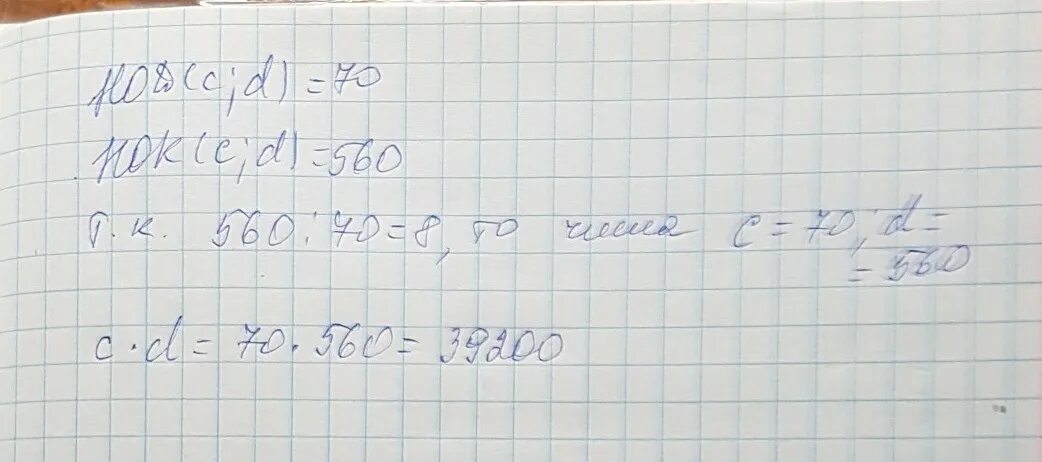 НОД(c;d)=70
НОК(c;d)=560
Т.к. 560:70=8, то числа c=70; d=
=560
c·d=70·560=39200